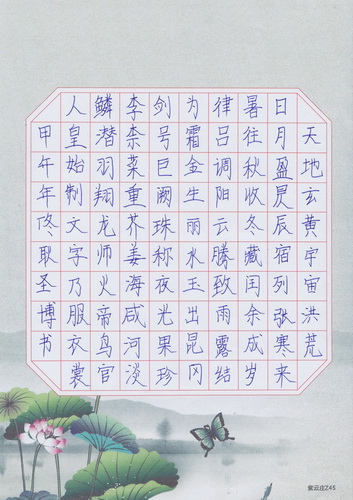 天地玄黄宇宙洪荒
日月盈昃辰宿列张寒来
暑往秋收冬藏闰余成岁
律吕调阳云腾致雨露结
为霜金生丽水玉出昆冈
剑号巨阙珠称夜光果珍
李柰菜重芥姜海咸河淡
鳞潜羽翔龙师火帝鸟官
人皇始制文字乃服衣裳
甲午年佟耿圣博书
紫云庄Z45